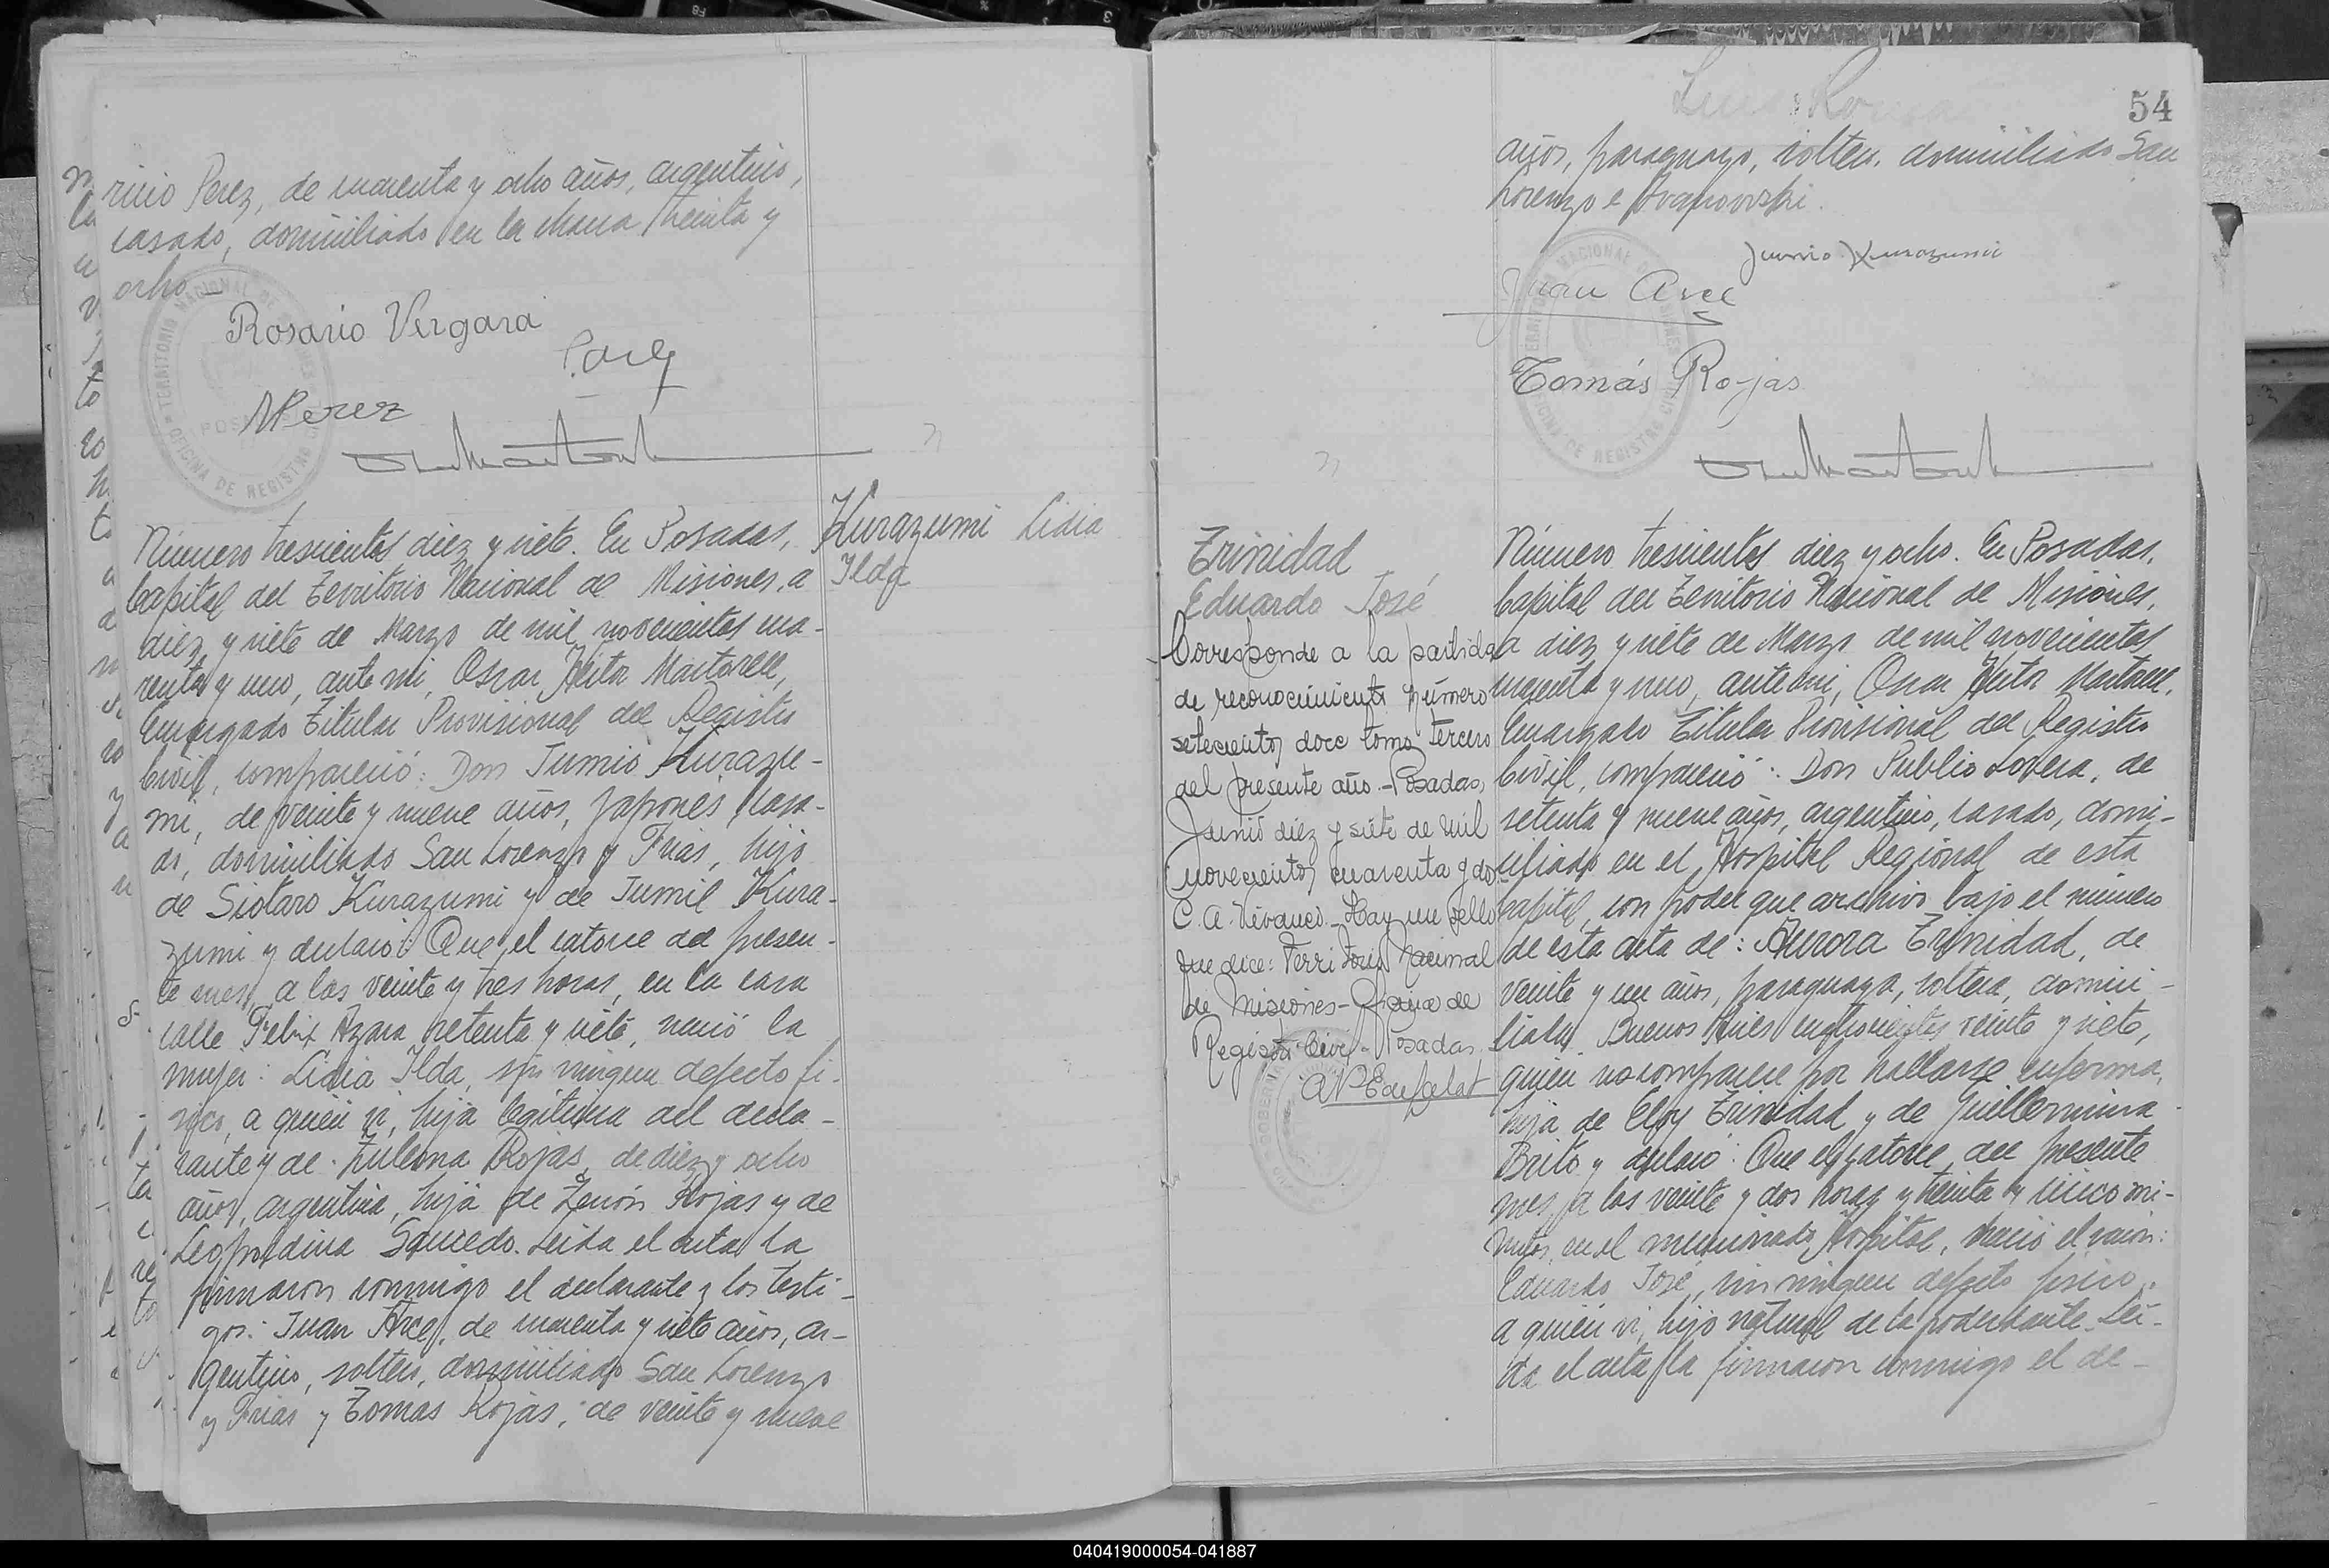 ricio Perez, de cuarenta y ocho años, argentino,
casado, domiciliado en la chacra treinta y
ocho.—
Rosario Vergara
MPerez
Número trescientos diez y siete. En Posadas,
Capital del Territorio Nacional de Misiones, a
diez y siete de Marzo de mil novecientos cua-
renta y uno, ante mi, Oscar Héctor Martorell,
Encargado Titular Provisional del Registro
Civil, compareció: Don Jumio Kurazu-
mi, de veinte y nueve años, japonés, casa-
do, domiciliado San Lorenzo y Frias, hijo
de Siotaro Kurazumi y de Jumil Kura-
zumi y declaró: Que el catorce del presen-
te mes, a las veinte y tres horas, en la casa
calle Felix Azara setenta y siete, nació la
mujer: Lidia Ilda, sin ningun defecto fi-
sico, a quien vi, hija legitima del decla-
rante y de Zulema Rojas, de diez y ocho
años, argentina, hija de Zenón Rojas y de
Leopoldina Saucedo. Leida el acta la
firmaron conmigo el declarante y los testi-
gos: Juan Arce, de cuarenta y siete años, ar-
gentino, soltero, domiciliado San Lorenzo
y Frias y Tomas Rojas, de veinte y nueve
Kurazumi Lidia
Ilda
54
años, paraguayo, soltero, domiciliado San
Lorenzo e
Jumio Kurazumi
Juan Arce
Tomás Rojas
Trinidad
Eduardo José
Corresponde a la partida
de reconocimiento número
setecientos doce tomo tercero
del presente año.- Posadas,
Junio diez y siete de mil
novecientos cuarenta y dos
C. A. Hay un sello
que dice: Territorio Nacional
de Misiones - Oficina de
Registro Civil - Posadas
Número trescientos diez y ocho. En Posadas,
Capital del Territorio Nacional de Misiones,
a diez y siete de Marzo de mil novecientos
cuarenta y uno, ante mi, Oscar Héctor Martorell,
Encargado Titular Provisional del Registro
Civil, compareció: Don Publio Lovera, de
setenta y nueve años, argentino, casado, domi-
ciliado en el Hospital Regional de esta
capital, con poder que archivo bajo el número
de esta acta de: Aurora Trinidad, de
veinte y un años, paraguaya, soltera, domici-
liada Buenos Aires cuatrocientos veinte y siete,
quien no comparece por hallarse enferma,
hija de Eloy Trinidad y de Guillermina
Brito y declaró: Que el catorce del presente
mes, a las veinte y dos horas y treinta y cinco mi-
nutos, en el mencionado Hospital, nació el varón:
Eduardo José, sin ningun defecto fisico,
a quien vi, hijo natural de la poderdante. Lei-
da el acta la firmaron conmigo el de-
040419000054-041887